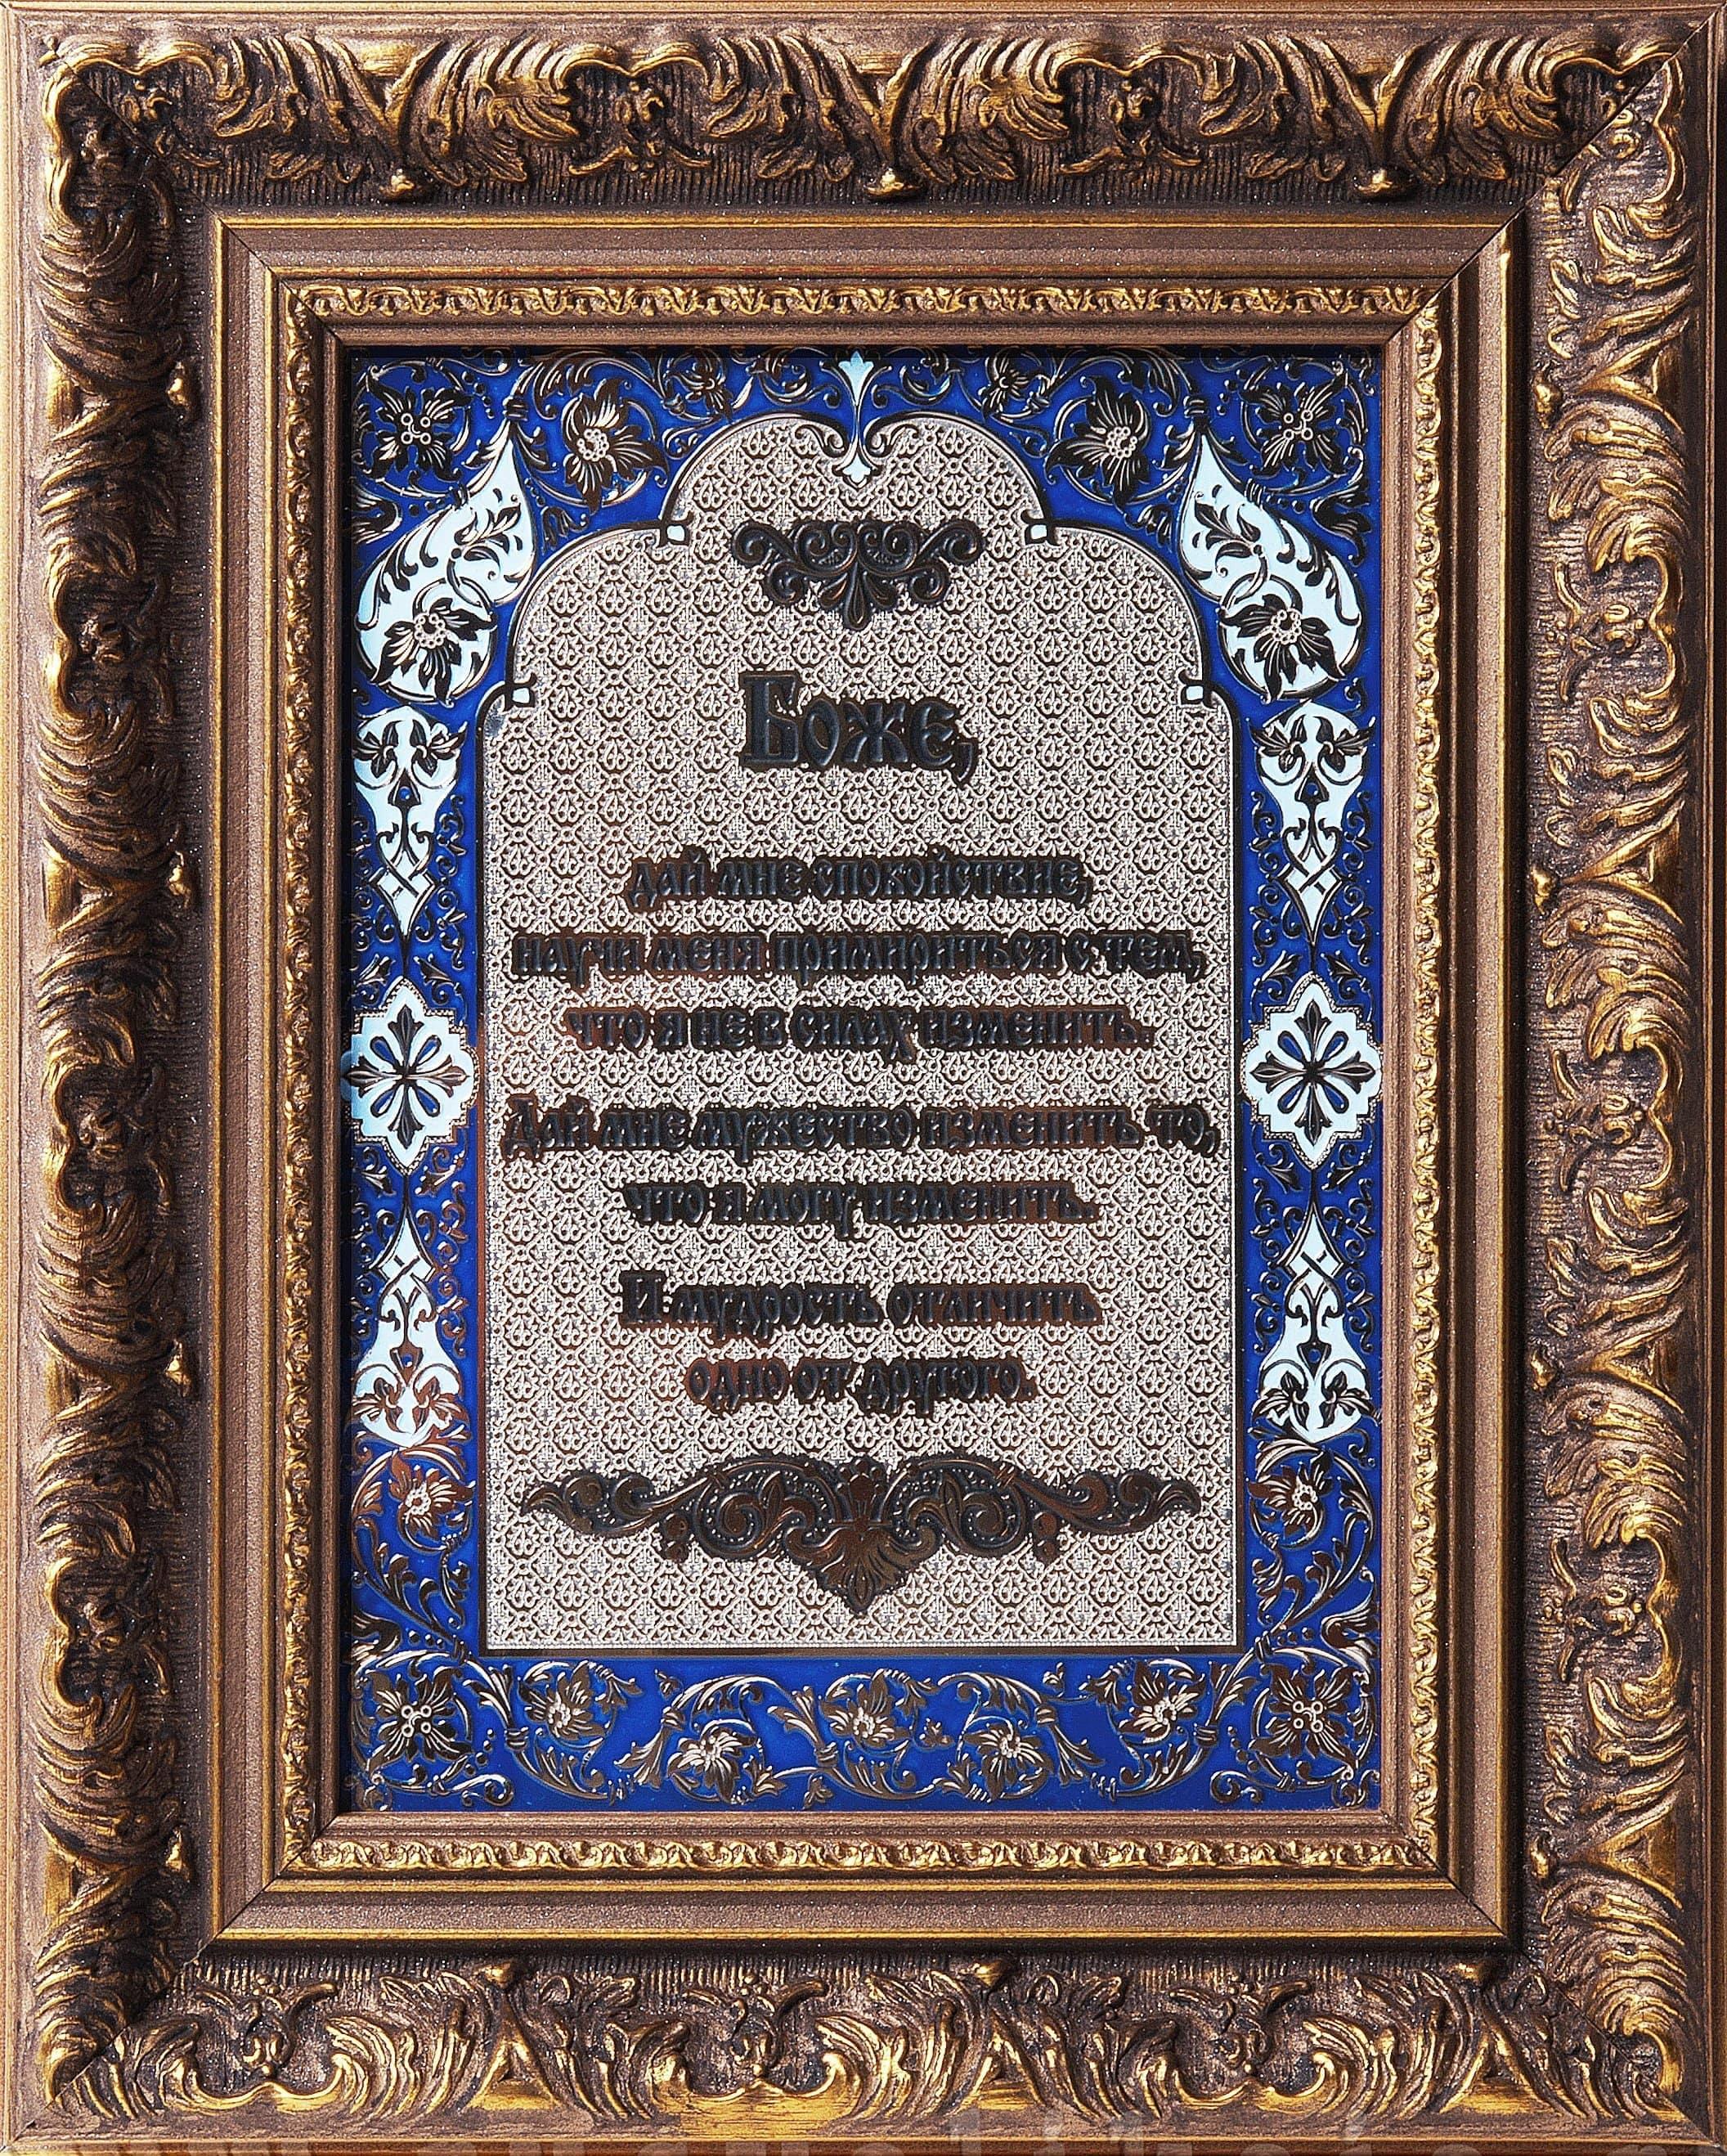 Боже,
дай мне спокойствие,
научи меня примириться с тем,
что я не в силах изменить.
Дай мне мужество изменить то,
что я могу изменить.
И мудрость отличить
одно от другого.